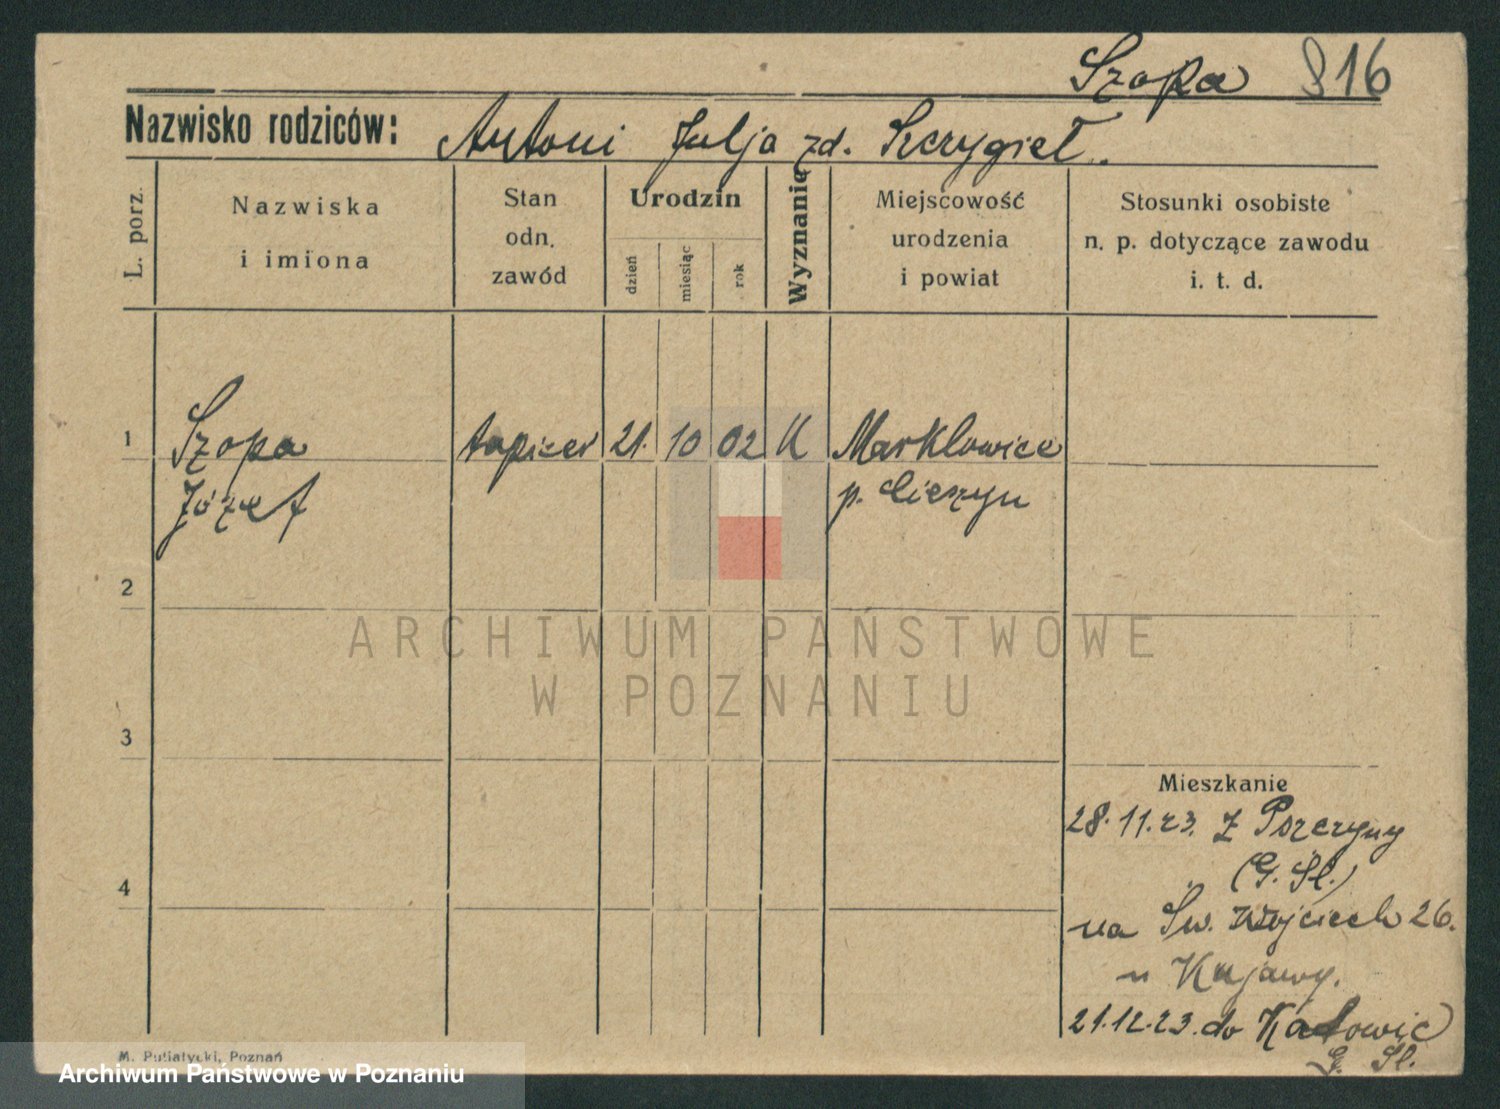 Szopa 816
Nazwisko rodziców: Antoni Julja zd. Szczygieł.
L. porz.
Nazwiska
i imiona
Stan
odn.
zawód
Urodzin
dzień
miesiąc
rok
Wyznanie
Miejscowość
urodzenia
i powiat
Stosunki osobiste
n. p. dotyczące zawodu
i. t. d.
1 Szopa tapicer 21. 10 02 K Marklowice
Józef p. Cieszyn
2
ARCHIWUM PAŃSTWOWE
W POZNANIU
3
Mieszkanie
28.11.23. z Pszczyny
(G. Sl.)
4
na Św. Wojciech 26.
u Kujawy.
21.12.23. do Katowic
G. Sl.
M. Putiatycki, Poznań
Archiwum Państwowe w Poznaniu